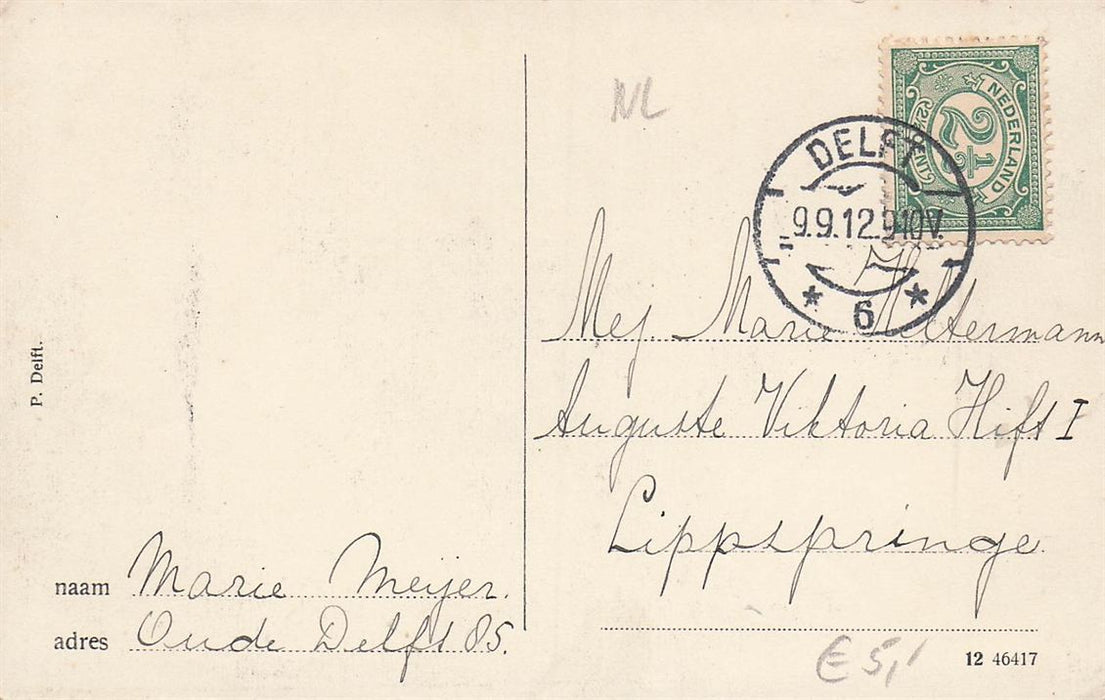 NL
NEDERLAND
2½
2½ CENT
DELFT
9.9.12.9-10V.
* 6 *
Mej. Marie Hiltermann
Auguste Viktoria Hift I
Lippspringe
P. Delft.
naam Marie Meijer.
adres Oude Delft 85.
€ 5,'
12 46417